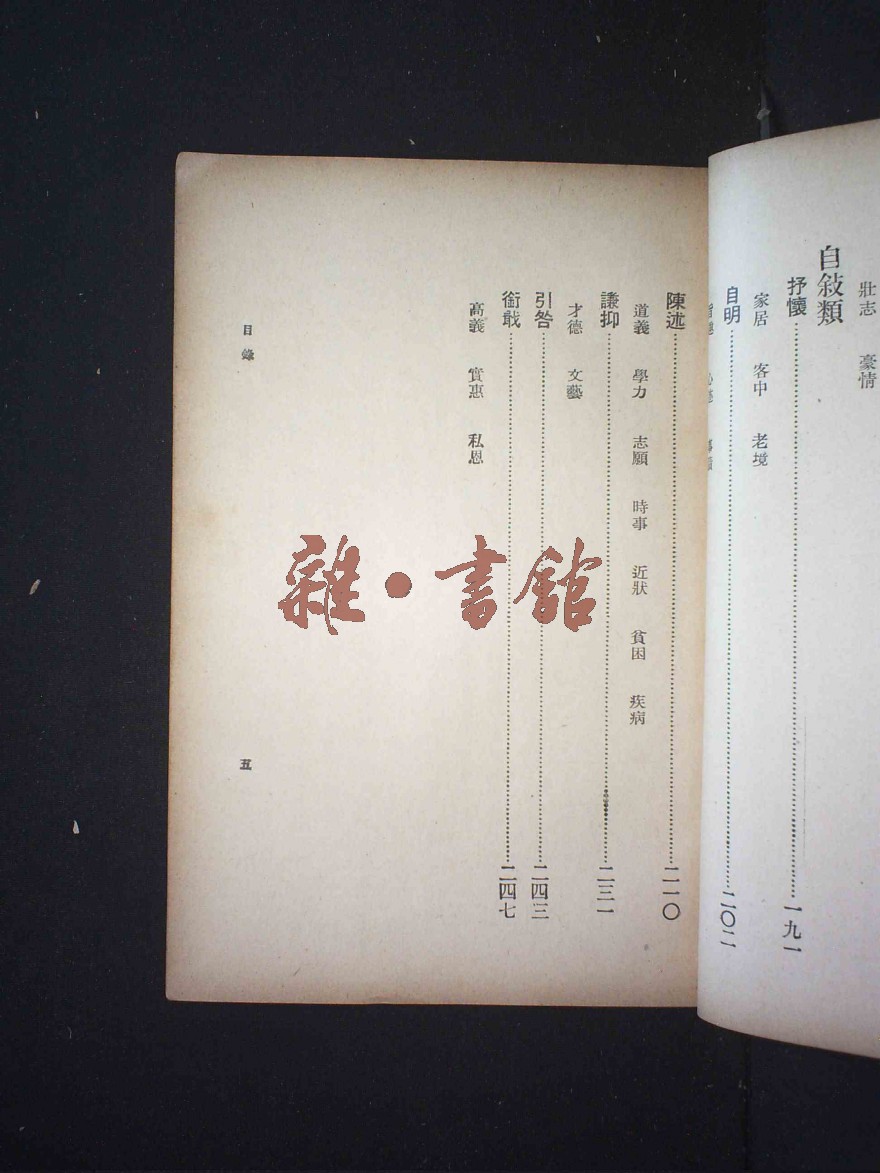 壯志 豪情
自敍類
抒懷……一九一
家居 客中 老境
自明……二〇二
陳述……二一〇
道義 學力 志願 時事 近狀 貧困 疾病
謙抑……二三一
才德 文藝
引咎……二四三
銜戢……二四七
高義 實惠 私恩
目錄 五
雜·書館